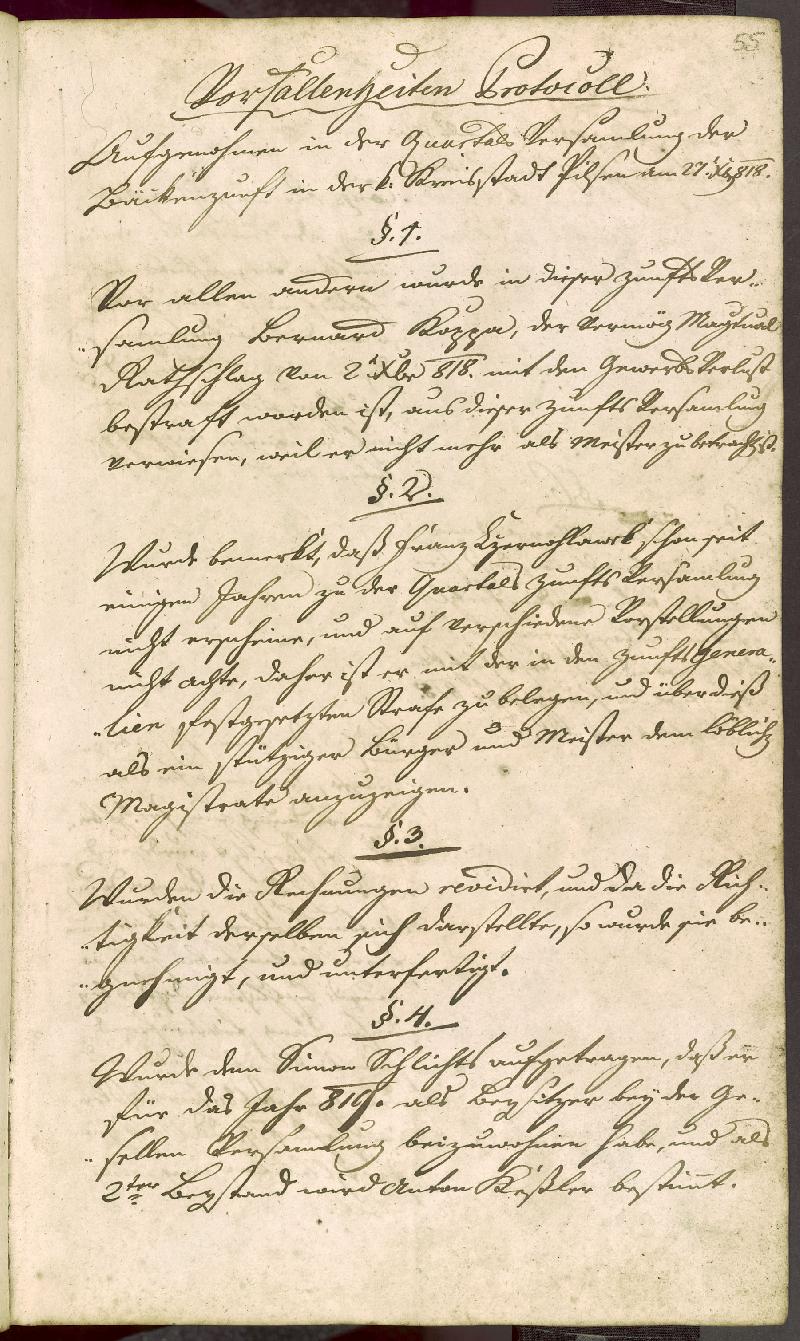 55
Vorfallenheiten Protocoll.
Aufgenohmen in der Quartals Versamlung der
Bäckenzunft in der k: Kreisstadt Pilsen am 27: Xb 818.
§. 1.
Vor allen andern wurde in dieser Zunfts Ver„
„samlung Bernard Kozza, der vermög Magtual
Rathschlag von 2t Xber 818. mit den Gewerbs Verlust
bestraft worden ist, aus dieser Zunfts Versamlung
verwiesen, weil er nicht mehr als Meister zu betrachten ist.
§. 2.
Wurde bemerkt, daß Franz Czernohlawek schon seit
einigen Jahren zu der Quartals Zunfts Versamlung
nicht erscheine, und auf verschiedene Vorstellungen
nicht achte, daher ist er mit der in den Zunfts Genera„
„lien festgesetzten Strafe zu belegen, und überdieß
als ein stütziger Bürger und Meister dem löblich
Magistrate anzuzeigen.
§. 3.
Wurden die Rechnungen revidirt, und da die Rich„
„tigkeit derselben sich darstellte, so wurde sie be„
„gnehmigt, und unterfertigt.
§. 4.
Wurde dem Simon Schlichts aufgetragen, daß er
für das Jahr 819. als Beysitzer bey der Ge„
„sellen Versamlung beizuwohnen habe, und als
2ter Beystand wird Anton Keßler bestimt.